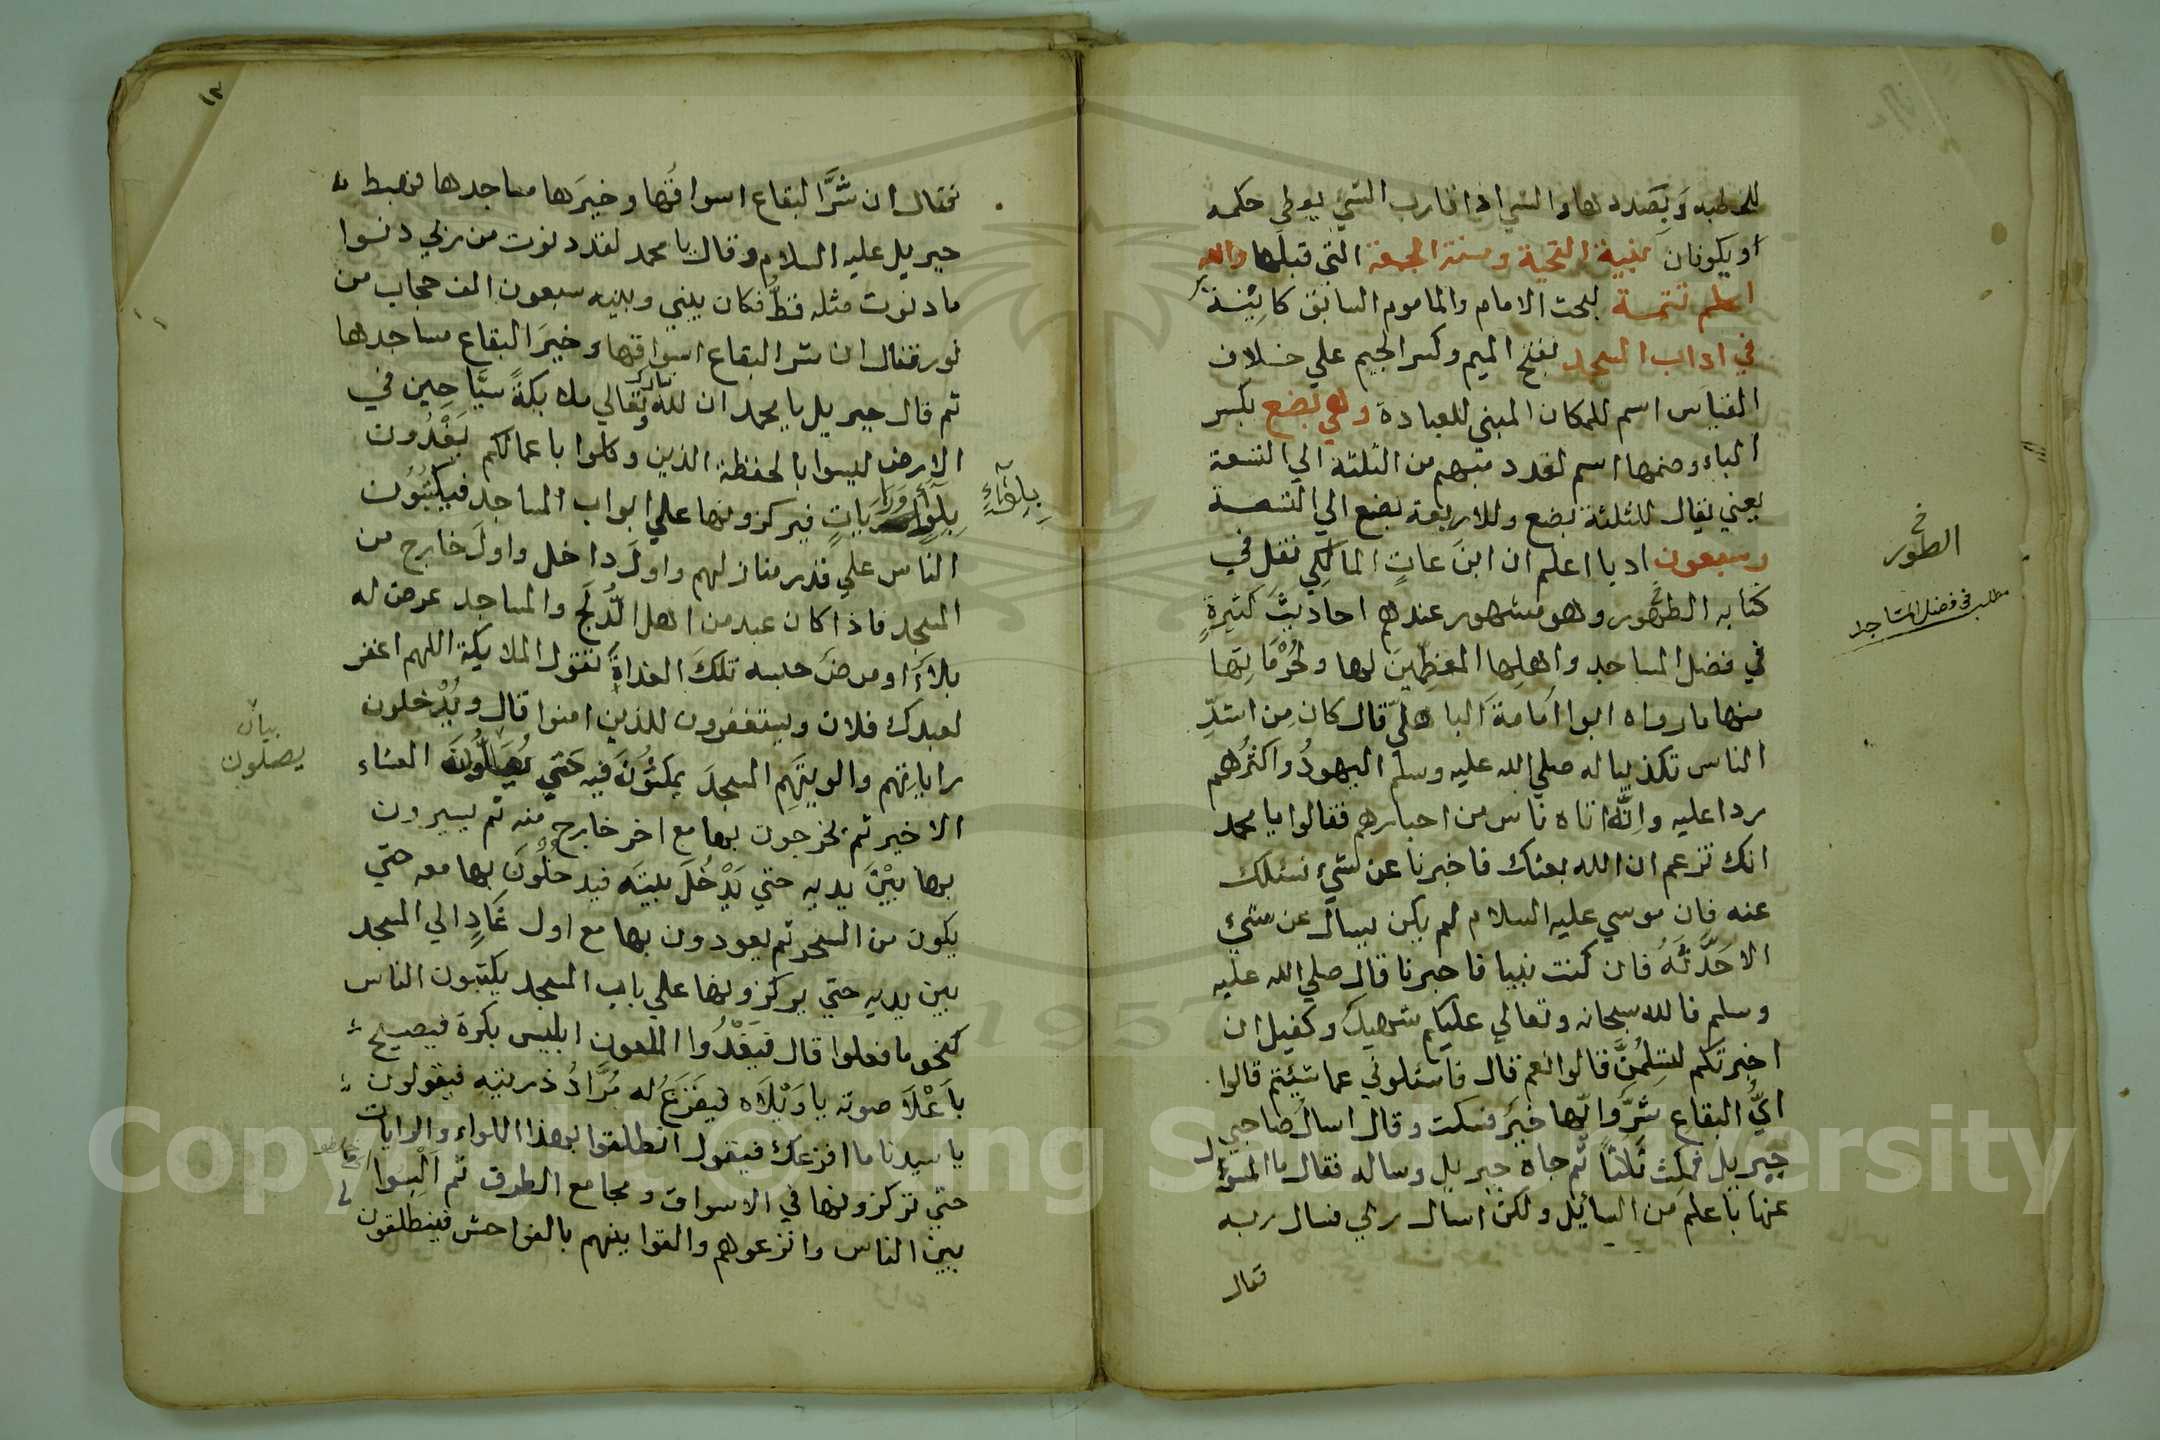 للخطبه وبصددها والشي اذا قارب الشي يوطي حكمه
او يكونان بنية التحية وسنة الجمعة التي قبلها والله
اعلم تتمة لبحث الامام والماموم السابق كاينة
في اداب المسجد بفتح الميم وكسر الجيم علي خلاف
القياس اسم للمكان المبني للعبادة وهي بضع بكسر
الباء وضمها اسم لعدد مبهم من الثلثة الي التسعة
يعني يقال للثلثة بضع وللاربعة بضع الي التسعة
وسبعون ادبا اعلم ان ابنَ عاتٍ المالكي نقل في
كتابه الطهور وهو مشهور عندهم احاديثَ كثيرةٍ
في فضل المساجد واهلها المعظمين لها ولحُرُمَاتِها
منها ما رواه ابوا امامة الباهليّ قال كان مِن اشدِّ
الناس تكذيبا له صلي الله عليه وسلم اليهودُ واكثرُهم
ردا عليه وانَّه اتاه ناس من احبارهم فقالوا يا محمد
انك تزعم ان الله بعثك فاخبرنا عن شيء نسئلك
عنه فان موسي عليه السلام لم يكن يسال عن شيء
الا حَدَّثَهُ فان كنت نبيا فاخبرنا قال صلي الله عليه
وسلم فالله سبحانه وتعالي عليكم شهيد وكفيل ان
اخبرتكم لتسلِمُنَّ قالوا نعم قال فاسئلوني عما شئيتم قالوا
ايُّ البقاع شَرٌّ وايّها خيرٌ فسكت وقال اسال صاحبي
جبريل فمكث ثلاثاً ثم جاه جبريل وساله فقال ما المسؤل
عنها باعلم من السائيل ولكن اسال ربي فسال ربه
فقال
الطهور
مطلب في فضل المساجد
١٣
فقال ان شرَّ البقاع اسواقُها وخيرَها مساجدها فهبط
جبريل عليه السلام وقال يا محمد لقد دنوت من ربي دنوا
ما دنوت مثله قطّ فكان بيني وبينه سبعون الف حجاب من
نور فقال ان شر البقاع اسواقها وخيرَ البقاع مساجدها
ثم قال جبريل يا محمد ان لله تبارك وتعالي ملايكةً سيَّاحين في
الارض ليسوا بالحفظة الذين وكلوا باعمالكم يَغْدُون
بِلِوَاءٍ ورايَاتٍ فيركزونها علي ابواب المساجد فيكتُبُون
الناس علي قدر منازلهم واولَ داخل واولَ خارج من
المسجد فاذا كان عبد من اهل الدُّلَجِ والمساجد عرض له
بلاءٌ او مرضٌ حبسه تلكَ الغداةَ تقول الملايكة اللهم اغفر
لعبدك فلان ويستغفرون للذين امنوا قال ويُدْخلون
راياتِهم والويتَهم المسجدَ يمكثونَ فيه حتي يُصَلُّونَ العشاء
الاخير ثم يخرجون بها مع اخر خارج منه ثم يسيرون
بها بيْنَ يديه حتي يَدْخُلَ بيتَه فيدخلُونَ بها معه حتي
يكون من السحر ثم يعودون بها مع اول غَادٍ الي المسجد
بين يديه حتي يركزونها علي باب المسجد يكتبون الناس
كنحو ما فعلوا قال فيَغْدُوا الملعون ابليس بكرة فيصيح
باعْلا صوته يا ويْلَاه فيَفزَعُ له مُرَّادُ ذريته فيقولون
يا سيدنا ما افزعك فيقول انطلقوا بهذا اللواء والرايات
حتي تركزونها في الاسواق ومجامع الطرق ثم البِسُوا
بين الناس وانزعوهم والقوا بينهم بالفواحش فينطلقون
بيان
يصلون
Copyright © King Saud University
1957